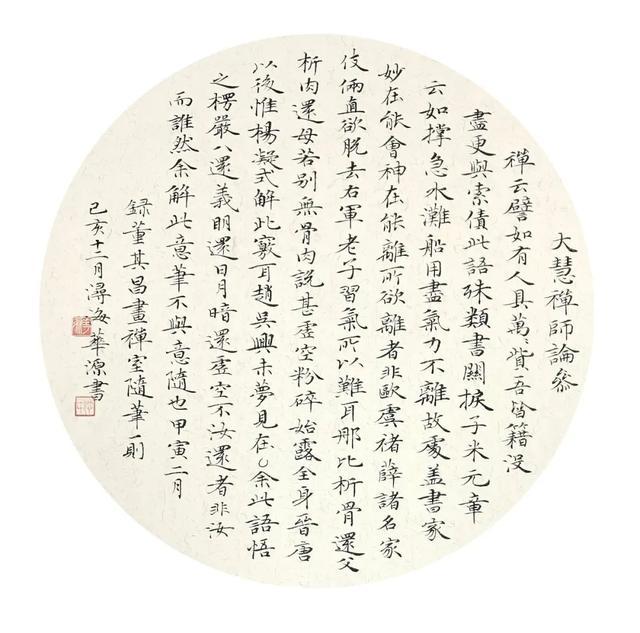 大慧禪師論參
禪云譬如有人具萬〻貲吾皆籍沒
盡更與索債此語殊類書關捩子米元章
云如撐急水灘船用盡氣力不離故處盖書家
妙在能會神在能離所欲離者非歐虞褚薛諸名家
伎倆直欲脫去右軍老子習氣所以難耳那比析骨還父
析肉還母若別無骨肉說甚虛空粉碎始露全身晉唐
以後惟楊凝式解此竅耳趙吳興未夢見在〇余此語悟
之楞嚴八還義明還日月暗還虛空不汝還者非汝
而誰然余解此意筆不與意隨也甲寅二月
録董其昌畫禪室隨筆一則
己亥十二月潯海華源書